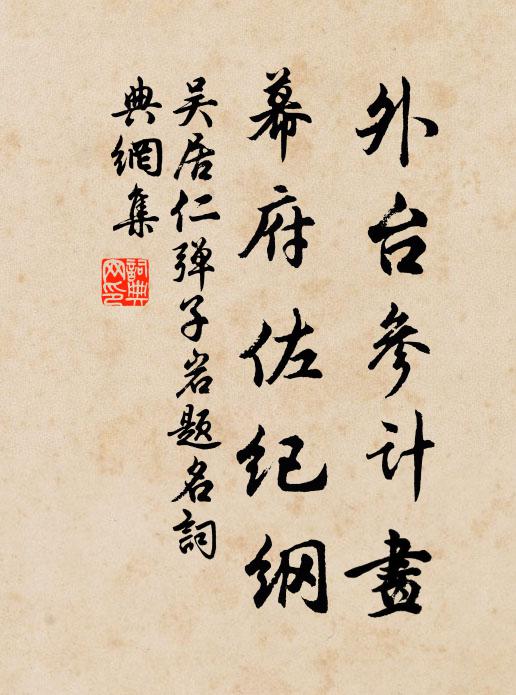 外台參计畫
幕府佐纪纲
吴居仁弹子岩题名詞
典網集
詞典
网印